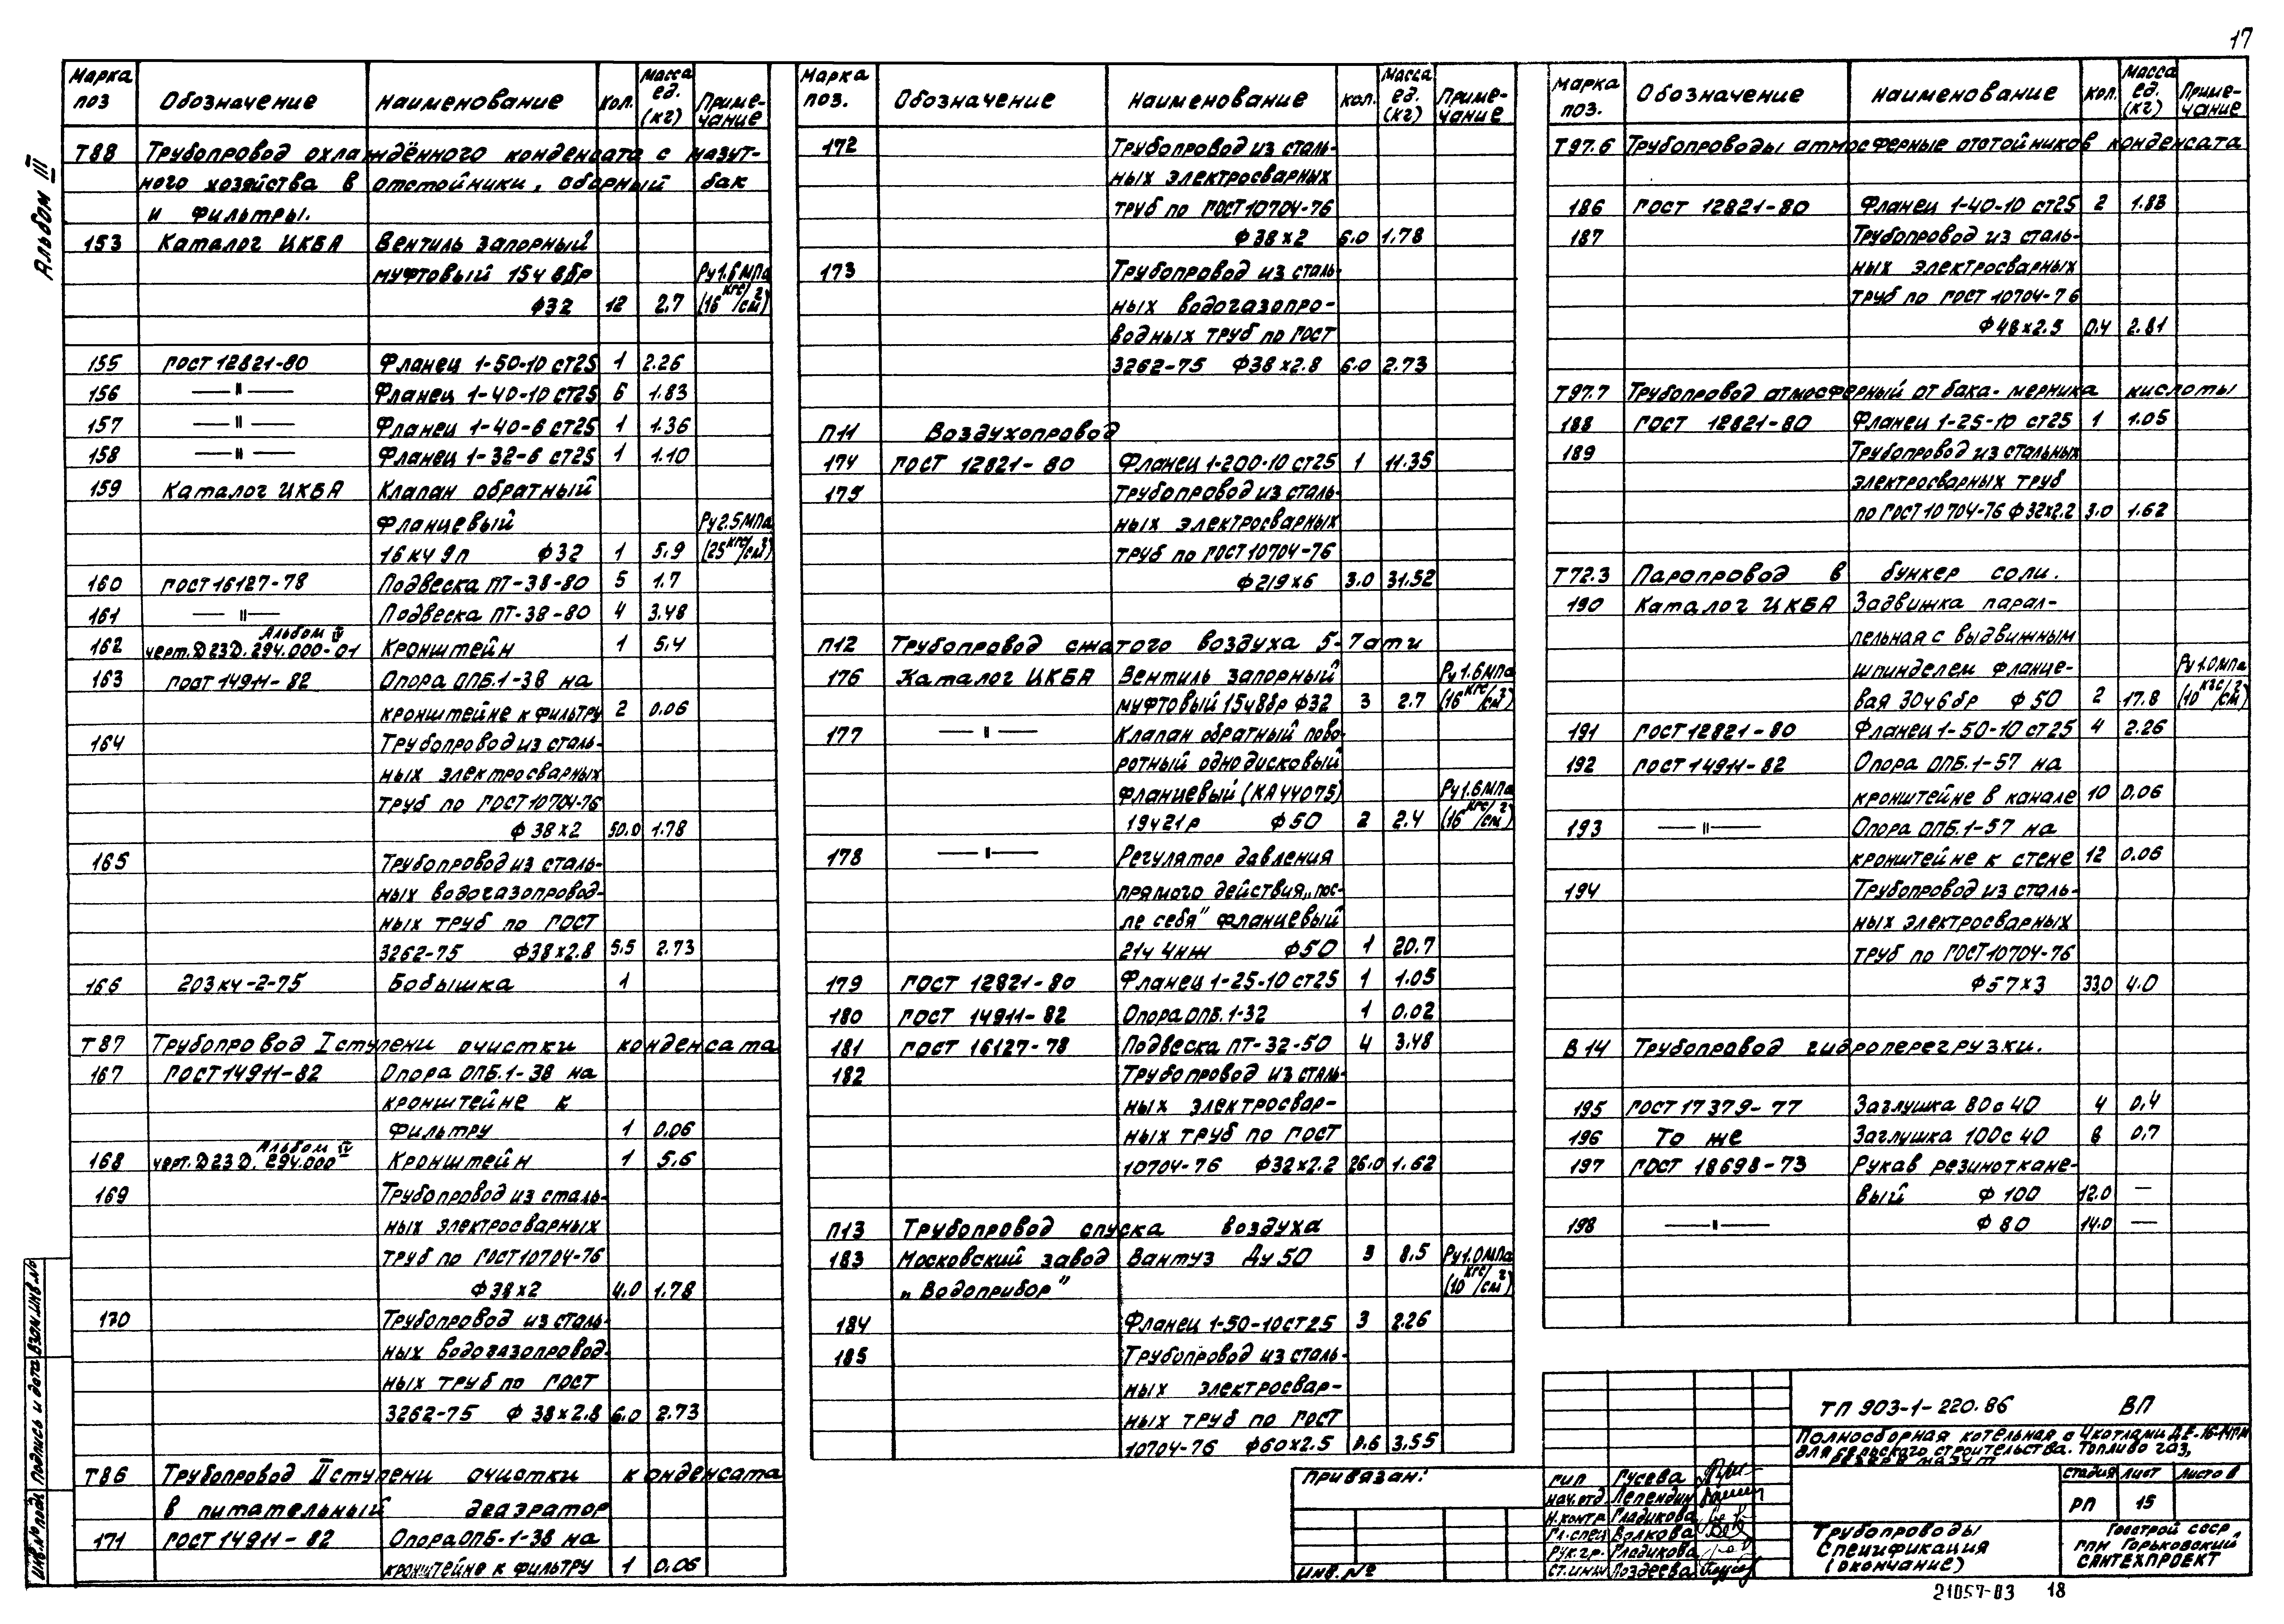 17
Альбом III
Марка поз Обозначение Наименование Кол. Масса ед. (кг) Приме-чание
Т88 Трубопровод охлаждённого конденсата с мазут-
ного хозяйства в отстойники, сборный бак
и фильтры.
153 Каталог ЦКБА Вентиль запорный
муфтовый 15ч 8бр Ру1.6МПа
ф32 12 2.7 (16 кгс/см²)
155 ГОСТ 12821-80 Фланец 1-50-10 ст25 1 2.26
156 —〃— Фланец 1-40-10 ст25 6 1.83
157 —〃— Фланец 1-40-6 ст25 1 1.36
158 —〃— Фланец 1-32-6 ст25 1 1.10
159 Каталог ЦКБА Клапан обратный
фланцевый Ру2.5МПа
16кч 9п ф32 1 5.9 (25 кгс/см²)
160 ГОСТ 16127-78 Подвеска ПТ-38-80 5 1.7
161 —〃— Подвеска ПТ-38-80 4 3.48
162 Альбом IV черт. Д23Д.294.000-01 Кронштейн 1 5.4
163 ГОСТ 14911-82 Опора ОПБ.1-38 на
кронштейне к фильтру 2 0.06
164 Трубопровод из сталь-
ных электросварных
труб по ГОСТ 10704-76
ф38х2 50.0 1.78
165 Трубопровод из сталь-
ных водогазопровод-
ных труб по ГОСТ
3262-75 ф38х2.8 5.5 2.73
166 203кч-2-75 Бобышка 1
Т87 Трубопровод I ступени очистки конденсата
167 ГОСТ 14911-82 Опора ОПБ.1-38 на
кронштейне к
фильтру 1 0.06
168 Альбом IV черт. Д23Д.294.000 Кронштейн 1 5.6
169 Трубопровод из сталь-
ных электросварных
труб по ГОСТ 10704-76
ф38х2 4.0 1.78
170 Трубопровод из сталь-
ных водогазопровод-
ных труб по ГОСТ
3262-75 ф38х2.8 6.0 2.73
Т86 Трубопровод II ступени очистки конденсата
в питательный деаэратор
171 ГОСТ 14911-82 Опора ОПБ-1-38 на
кронштейне к фильтру 1 0.06
Марка поз. Обозначение Наименование Кол. Масса ед. (кг) Приме-чание
172 Трубопровод из сталь-
ных электросварных
труб по ГОСТ 10704-76
ф38х2 6.0 1.78
173 Трубопровод из сталь-
ных водогазопро-
водных труб по ГОСТ
3262-75 ф38х2.8 6.0 2.73
П11 Воздухопровод
174 ГОСТ 12821-80 Фланец 1-200-10 ст25 1 11.35
175 Трубопровод из сталь-
ных электросварных
труб по ГОСТ 10704-76
ф219х6 3.0 31.52
П12 Трубопровод сжатого воздуха 5-7ати
176 Каталог ЦКБА Вентиль запорный Ру1.6МПа
муфтовый 15ч8бр ф32 3 2.7 (16 кгс/см²)
177 —〃— Клапан обратный пово-
ротный однодисковый
фланцевый (КА44075) Ру1.6МПа
19ч21р ф50 2 2.4 (16 кгс/см²)
178 —〃— Регулятор давления
прямого действия „пос-
ле себя" фланцевый
21ч 4нж ф50 1 20.7
179 ГОСТ 12821-80 Фланец 1-25-10 ст25 1 1.05
180 ГОСТ 14911-82 Опора ОПБ.1-32 1 0.02
181 ГОСТ 16127-78 Подвеска ПТ-32-50 4 3.48
182 Трубопровод из сталь-
ных электросвар-
ных труб по ГОСТ
10704-76 ф32х2.2 26.0 1.62
П13 Трубопровод спуска воздуха
183 Московский завод Вантуз Ду 50 3 8.5 Ру1.0МПа
„Водоприбор" (10 кгс/см²)
184 Фланец 1-50-10ст25 3 2.26
185 Трубопровод из сталь-
ных электросвар-
ных труб по ГОСТ
10704-76 ф60х2.5 0.6 3.55
Марка поз. Обозначение Наименование Кол. Масса ед. (кг) Приме-чание
Т97.6 Трубопроводы атмосферные отстойников конденсата
186 ГОСТ 12821-80 Фланец 1-40-10 ст25 2 1.83
187 Трубопровод из сталь-
ных электросварных
труб по ГОСТ 10704-76
ф48х2.5 0.4 2.81
Т97.7 Трубопровод атмосферный от бака-мерника кислоты
188 ГОСТ 12821-80 Фланец 1-25-10 ст25 1 1.05
189 Трубопровод из стальных
электросварных труб
по ГОСТ 10704-76 ф32х2.2 3.0 1.62
Т72.3 Паропровод в бункер соли.
190 Каталог ЦКБА Задвижка парал-
лельная с выдвижным
шпинделем фланце- Ру1.0МПа
вая 30ч6бр ф50 2 17.8 (10 кгс/см²)
191 ГОСТ 12821-80 Фланец 1-50-10 ст25 4 2.26
192 ГОСТ 14911-82 Опора ОПБ.1-57 на
кронштейне в канале 10 0.06
193 —〃— Опора ОПБ.1-57 на
кронштейне к стене 12 0.06
194 Трубопровод из сталь-
ных электросварных
труб по ГОСТ 10704-76
ф57х3 33.0 4.0
В14 Трубопровод гидроперегрузки.
195 ГОСТ 17379-77 Заглушка 80с40 4 0.4
196 То же Заглушка 100с40 8 0.7
197 ГОСТ 18698-73 Рукав резиноткане-
вый ф100 12.0 —
198 —〃— ф80 14.0 —
ТП 903-1-220.86 ВП
Полносборная котельная с 4 котлами ДЕ-16-14ГМ
для сельского строительства. Топливо газ,
резерв мазут
Привязан:
Инв. №
ГИП Гусева
Нач.отд. Лепендин
Н.контр. Гладикова
Гл.спец Волкова
Рук.гр. Гладикова
Ст.инж Поздеева
Стадия Лист Листов
РП 15
Трубопроводы
Спецификация
(окончание)
Госстрой СССР
ГПИ Горьковский
САНТЕХПРОЕКТ
Инв.№ подл. Подпись и дата Взам.инв.№
21057-03 18